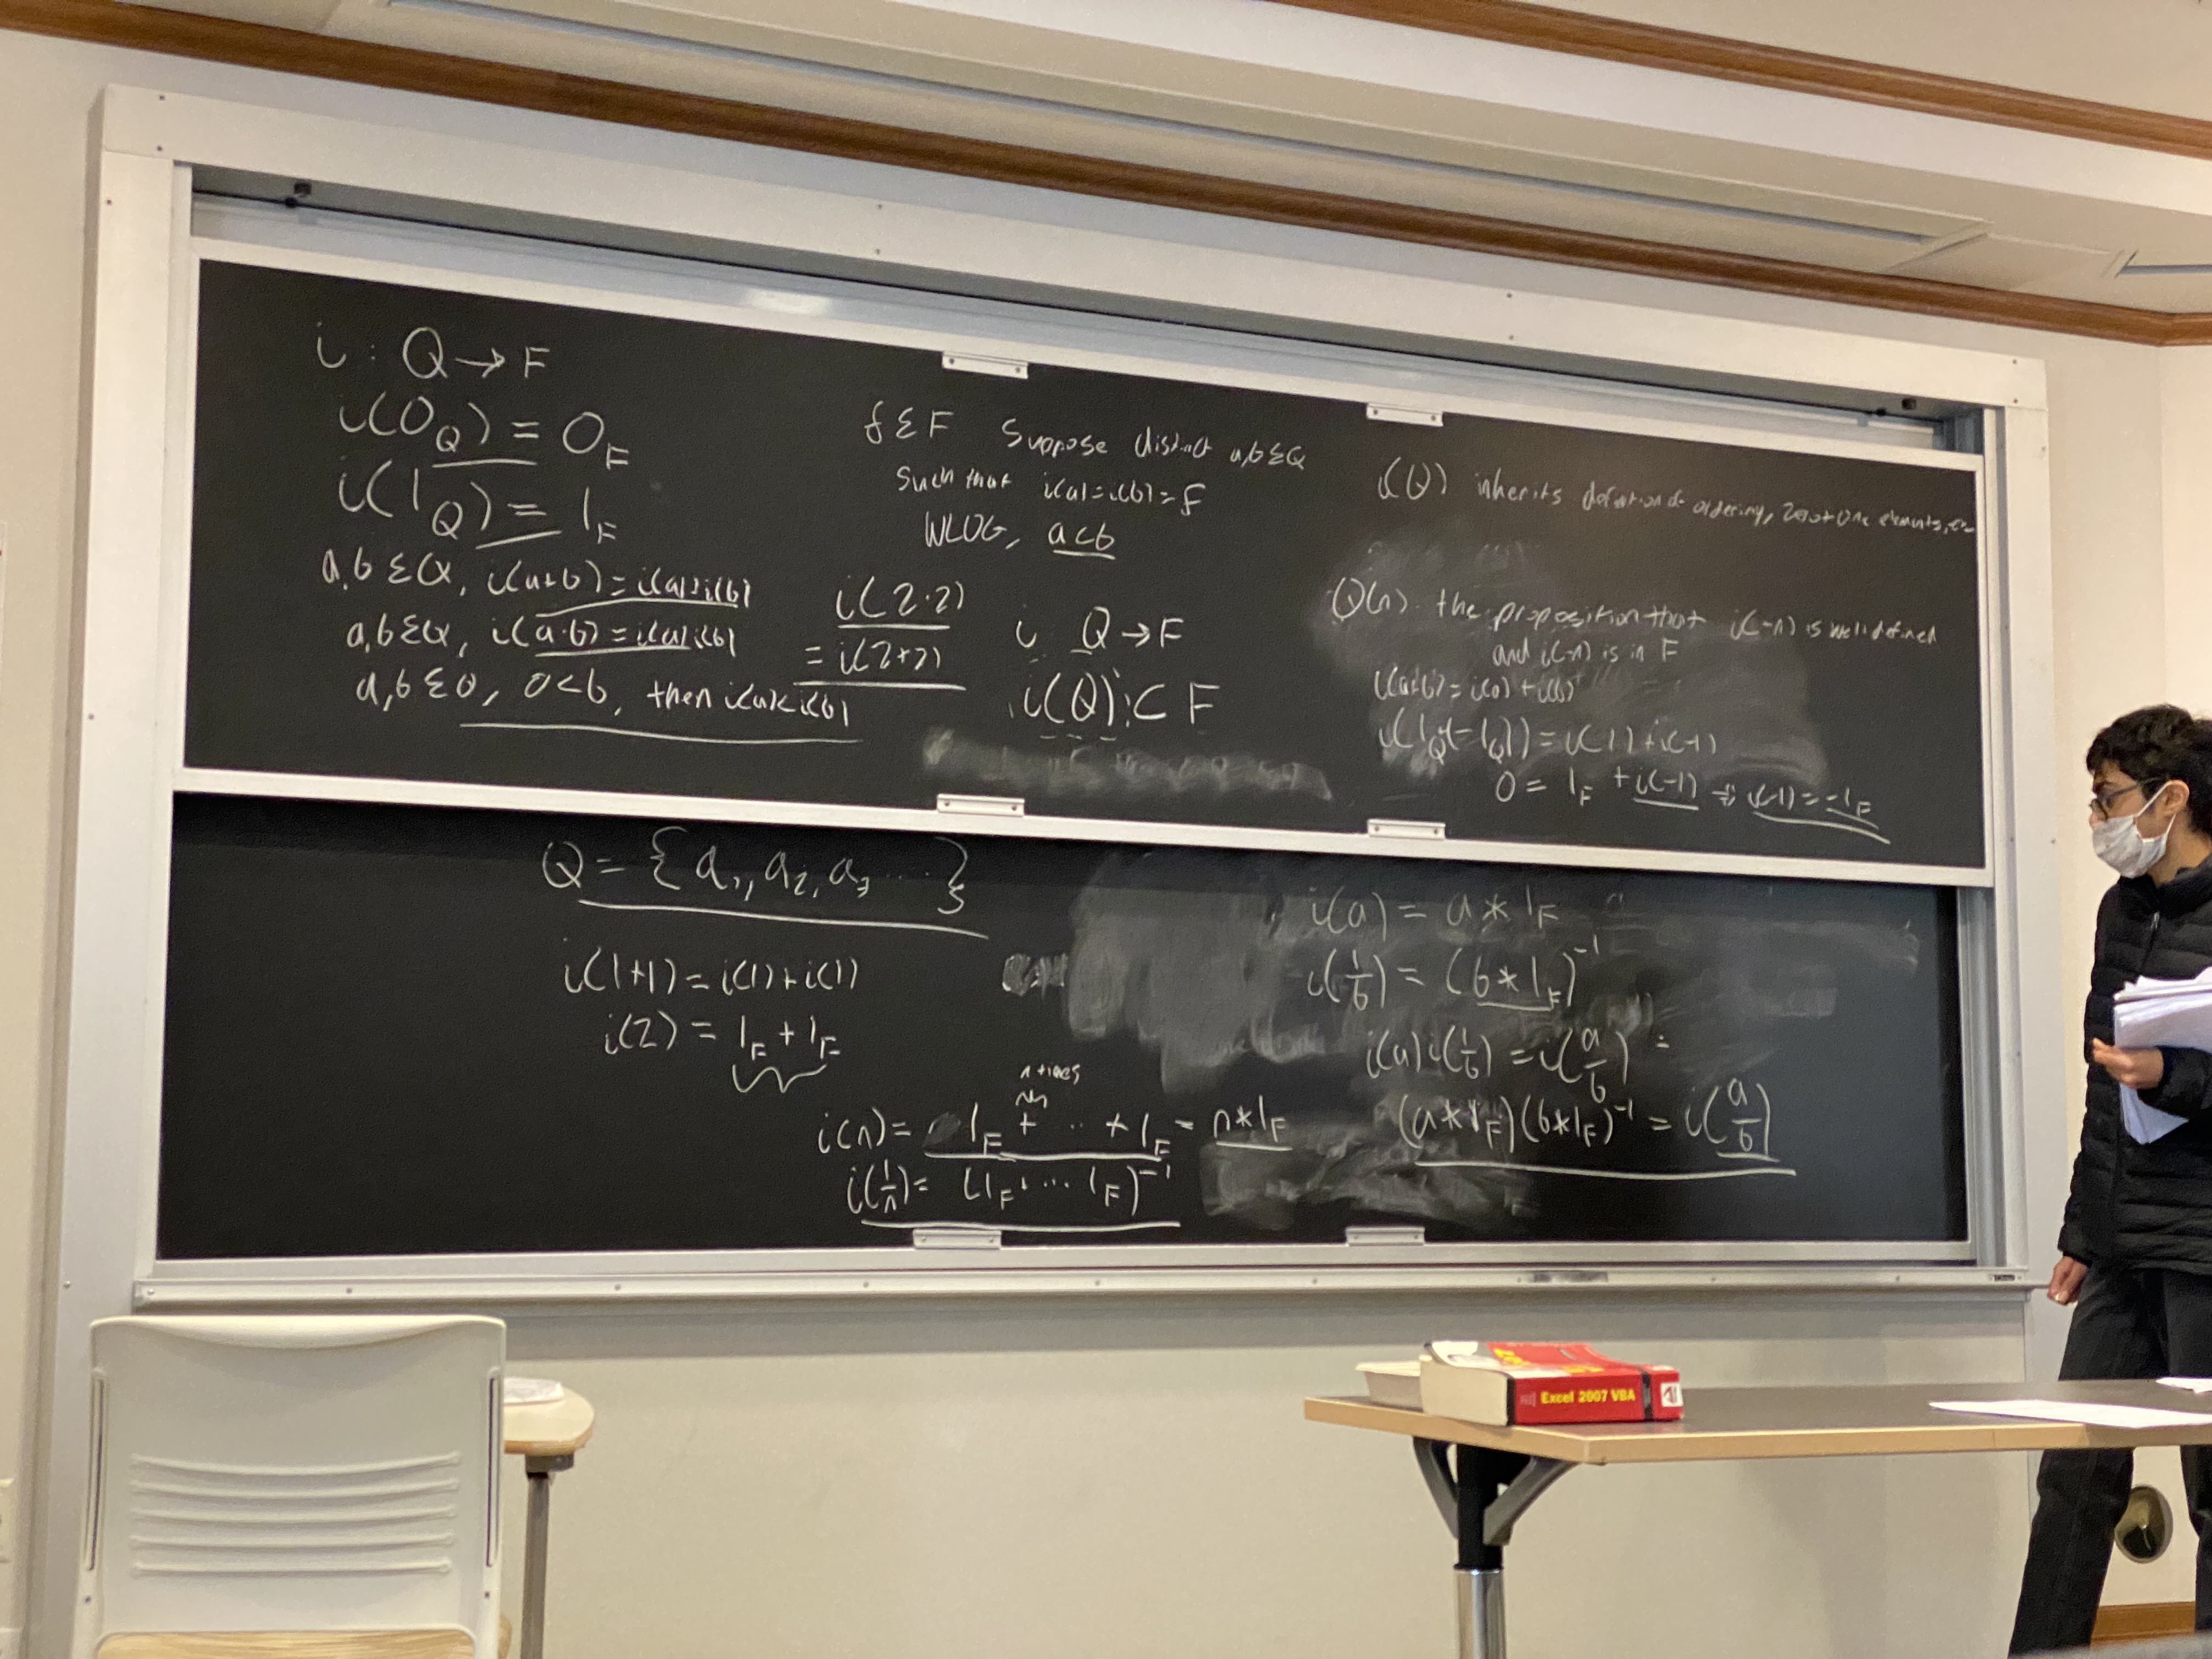 i : Q → F
i(0_Q) = 0_F
i(1_Q) = 1_F
a,b ∈ Q, i(a+b) = i(a)+i(b)
a,b ∈ Q, i(a·b) = i(a)i(b)
a,b ∈ Q, a<b, then i(a)<i(b)
i(2·2)
= i(2+2)
f ∈ F Suppose distinct a,b ∈ Q
Such that i(a)=i(b)=f
WLOG, a<b
i Q → F
i(Q) ⊂ F
i(Q) inherits ordering, zero + one elements,
Q(n). the proposition that i(-n) is well defined
and i(-n) is in F
i(a+b) = i(a) + i(b)
i(1_Q+(-1_Q)) = i(1) + i(-1)
0 = 1_F + i(-1) ⇒ i(-1) = -1_F
Q = {a_1, a_2, a_3 ...}
i(1+1) = i(1)+i(1)
i(2) = 1_F + 1_F
n times
i(n) = 1_F + ·· + 1_F = n*1_F
i(1/n) = (1_F + ... 1_F)^-1
i(a) = a * 1_F
i(1/b) = (b * 1_F)^-1
i(a) i(1/b) = i(a/b) =
(a*1_F)(b*1_F)^-1 = i(a/b)
Excel 2007 VBA